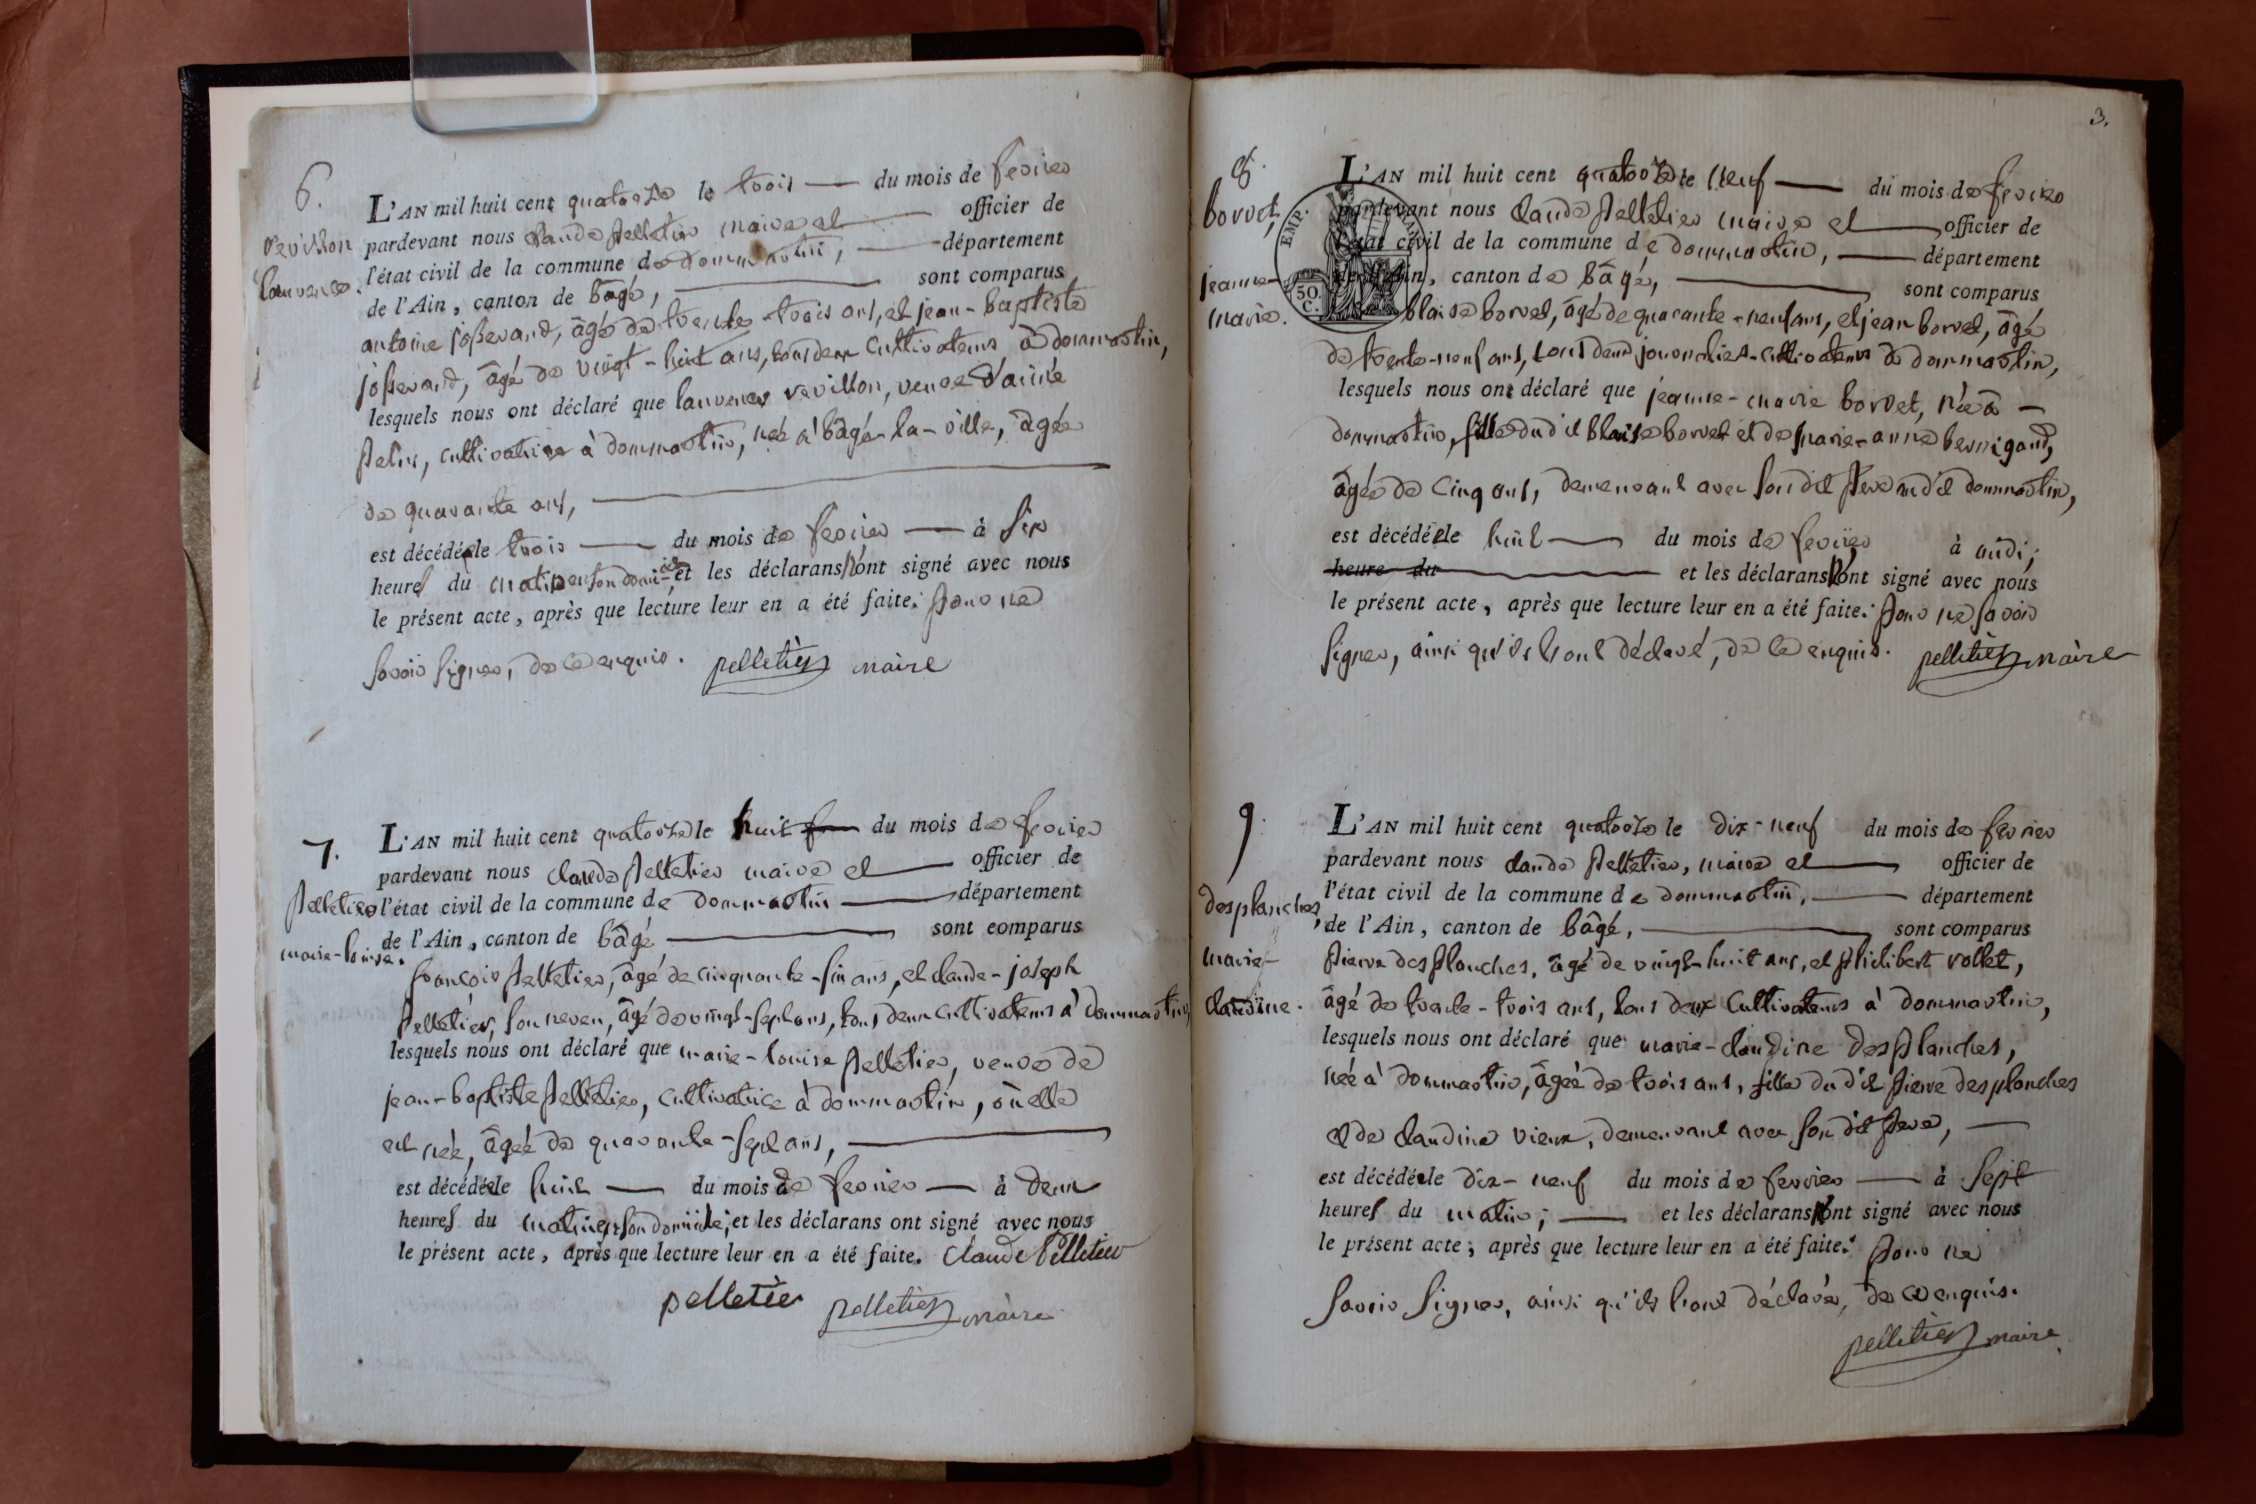 6.
revillon
laurence.
L'AN mil huit cent quatorze le trois du mois de fevrier
pardevant nous claude pelletier maire et officier de
l'état civil de la commune de dommartin, département
de l'Ain, canton de bâgé, sont comparus
antoine josserand, âgé de trente-trois ans, et jean-baptiste
josserand, âgé de vingt-huit ans, tous deux cultivateurs à dommartin,
lesquels nous ont déclaré que laurence revillon, veuve d'aimé
pelus, cultivatrice à dommartin, née à bâgé-la-ville, âgée
de quarante ans,
est décédée le trois du mois de fevrier à six
heures du matin en son domicile et les déclarans n'ont signé avec nous
le présent acte, après que lecture leur en a été faite. pour ne
savoir signer, de ce enquis. pelletier maire
7.
pelletier
marie-louise.
L'AN mil huit cent quatorze le huit du mois de fevrier
pardevant nous claude pelletier maire et officier de
l'état civil de la commune de dommartin département
de l'Ain, canton de bâgé sont comparus
françois pelletier, âgé de cinquante-six ans, et claude-joseph
pelletier, son neveu, âgé de vingt-sept ans, tous deux cultivateurs à dommartin,
lesquels nous ont déclaré que marie-louise pelletier, veuve de
jean-baptiste pelletier, cultivatrice à dommartin, où elle
est née, âgée de quarante-sept ans,
est décédée le huit du mois de fevrier à deux
heures du matin en son domicile; et les déclarans ont signé avec nous
le présent acte, après que lecture leur en a été faite. Claude Pelletier
pelletier pelletier maire
3.
8.
borvet,
jeanne-
marie.
EMP.
50
C.
L'AN mil huit cent quatorze le neuf du mois de fevrier
pardevant nous claude pelletier maire et officier de
l'état civil de la commune de dommartin, département
de l'Ain, canton de bâgé, sont comparus
blaise borvet, âgé de quarante-neuf ans, et jean borvet, âgé
de trente-neuf ans, tous deux journaliers-cultivateurs à dommartin,
lesquels nous ont déclaré que jeanne-marie borvet, née à
dommartin, fille dudit blaise borvet et de marie-anne bernigaud,
âgée de cinq ans, demeurant avec son dit père audit dommartin,
est décédée le huit du mois de fevrier à midi;
heure du et les déclarans n'ont signé avec nous
le présent acte, après que lecture leur en a été faite. pour ne savoir
signer, ainsi qu'ils l'ont déclaré, de ce enquis. pelletier maire
9.
desplanches,
marie-
claudine.
L'AN mil huit cent quatorze le dix-neuf du mois de fevrier
pardevant nous claude pelletier, maire et officier de
l'état civil de la commune de dommartin, département
de l'Ain, canton de bâgé, sont comparus
pierre desplanches, âgé de vingt-huit ans, et philibert rollet,
âgé de trente-trois ans, tous deux cultivateurs à dommartin,
lesquels nous ont déclaré que marie-claudine desplanches,
née à dommartin, âgée de trois ans, fille du dit pierre desplanches
et de claudine vieux, demeurant avec son dit père,
est décédée le dix-neuf du mois de fevrier à sept
heures du matin; et les déclarans n'ont signé avec nous
le présent acte, après que lecture leur en a été faite. pour ne
savoir signer, ainsi qu'ils l'ont déclaré, de ce enquis.
pelletier maire